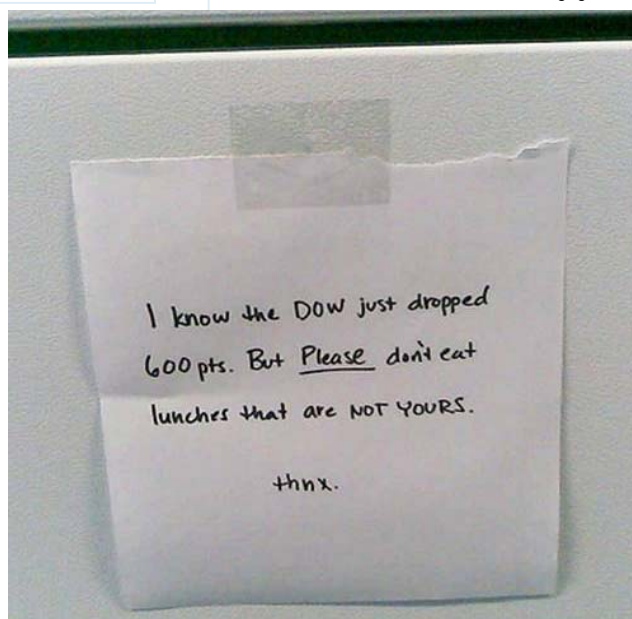 I know the DOW just dropped
600 pts. But Please don't eat
lunches that are NOT YOURS.
thnx.